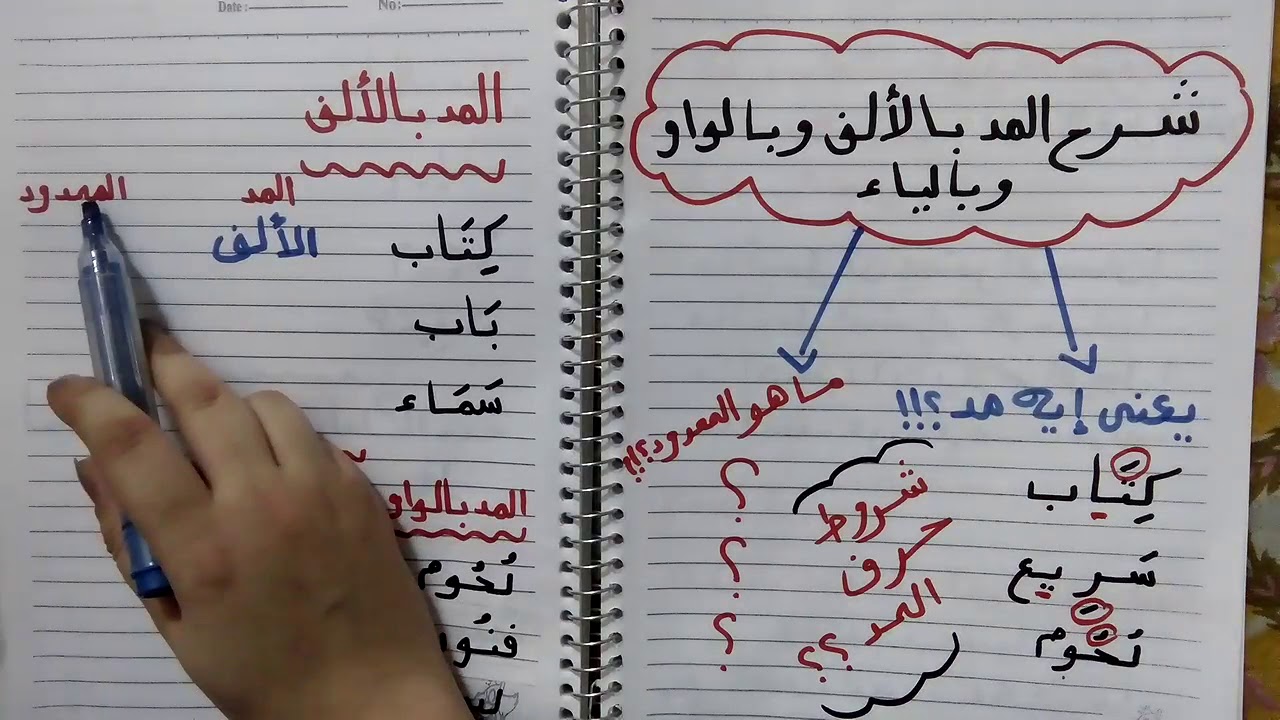 شرح المد بالألف وبالواو
وبالياء
يعنى إيه مد؟!!!
ما هو الممدود؟!!
كِتَاب
سَريع
نُحُوم
شروط
حرف
المد؟؟
؟
؟
؟
Date: No:
المد بالألف
المد الممدود
كِتَاب الألف
بَاب
سَمَاء
المد بالواو
نُحُوم